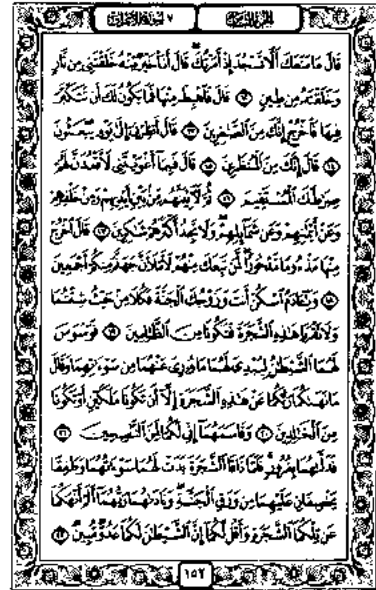 الجزء الثامن ٧ سورة الأعراف
قَالَ مَا مَنَعَكَ أَلَّا تَسْجُدَ إِذْ أَمَرْتُكَ قَالَ أَنَا۠ خَيْرٌ مِّنْهُ خَلَقْتَنِي مِن نَّارٍ
وَخَلَقْتَهُۥ مِن طِينٍ ١٢ قَالَ فَٱهْبِطْ مِنْهَا فَمَا يَكُونُ لَكَ أَن تَتَكَبَّرَ
فِيهَا فَٱخْرُجْ إِنَّكَ مِنَ ٱلصَّٰغِرِينَ ١٣ قَالَ أَنظِرْنِيٓ إِلَىٰ يَوْمِ يُبْعَثُونَ
١٤ قَالَ إِنَّكَ مِنَ ٱلْمُنظَرِينَ ١٥ قَالَ فَبِمَآ أَغْوَيْتَنِي لَأَقْعُدَنَّ لَهُمْ
صِرَٰطَكَ ٱلْمُسْتَقِيمَ ١٦ ثُمَّ لَأٓتِيَنَّهُم مِّنۢ بَيْنِ أَيْدِيهِمْ وَمِنْ خَلْفِهِمْ
وَعَنْ أَيْمَٰنِهِمْ وَعَن شَمَآئِلِهِمْ وَلَا تَجِدُ أَكْثَرَهُمْ شَٰكِرِينَ ١٧ قَالَ ٱخْرُجْ
مِنْهَا مَذْءُومًا مَّدْحُورًا لَّمَن تَبِعَكَ مِنْهُمْ لَأَمْلَأَنَّ جَهَنَّمَ مِنكُمْ أَجْمَعِينَ
١٨ وَيَٰٓـَٔادَمُ ٱسْكُنْ أَنتَ وَزَوْجُكَ ٱلْجَنَّةَ فَكُلَا مِنْ حَيْثُ شِئْتُمَا
وَلَا تَقْرَبَا هَٰذِهِ ٱلشَّجَرَةَ فَتَكُونَا مِنَ ٱلظَّٰلِمِينَ ١٩ فَوَسْوَسَ
لَهُمَا ٱلشَّيْطَٰنُ لِيُبْدِيَ لَهُمَا مَا وُۥرِيَ عَنْهُمَا مِن سَوْءَٰتِهِمَا وَقَالَ
مَا نَهَىٰكُمَا رَبُّكُمَا عَنْ هَٰذِهِ ٱلشَّجَرَةِ إِلَّآ أَن تَكُونَا مَلَكَيْنِ أَوْ تَكُونَا
مِنَ ٱلْخَٰلِدِينَ ٢٠ وَقَاسَمَهُمَآ إِنِّي لَكُمَا لَمِنَ ٱلنَّٰصِحِينَ ٢١
فَدَلَّىٰهُمَا بِغُرُورٍ فَلَمَّا ذَاقَا ٱلشَّجَرَةَ بَدَتْ لَهُمَا سَوْءَٰتُهُمَا وَطَفِقَا
يَخْصِفَانِ عَلَيْهِمَا مِن وَرَقِ ٱلْجَنَّةِ وَنَادَىٰهُمَا رَبُّهُمَآ أَلَمْ أَنْهَكُمَا
عَن تِلْكُمَا ٱلشَّجَرَةِ وَأَقُل لَّكُمَآ إِنَّ ٱلشَّيْطَٰنَ لَكُمَا عَدُوٌّ مُّبِينٌ ٢٢
١٥٢